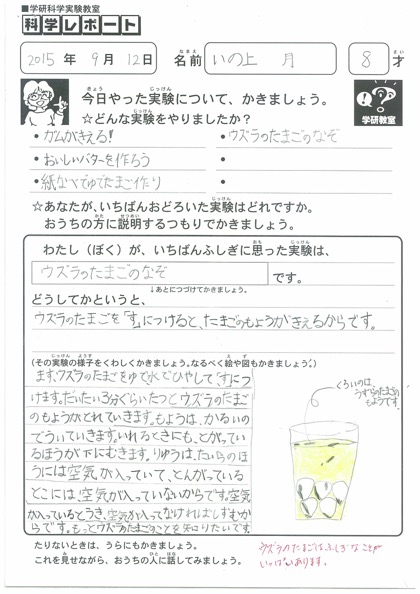 ■学研科学実験教室
科学レポート
2015年 9月 12日 名前 いの上 月 8才
今日やった実験について、かきましょう。
☆どんな実験をやりましたか？
・ガムがきえる!
・ウズラのたまごのなぞ
・おいしいバターを作ろう
・
・紙なべでゆでたまご作り
・
学研教室
☆あなたが、いちばんおどろいた実験はどれですか。
おうちの方に説明するつもりでかきましょう。
わたし（ぼく）が、いちばんふしぎに思った実験は、
ウズラのたまごのなぞ です。
↓あとにつづけてかきましょう。
どうしてかというと、
ウズラのたまごを「す」につけると、たまごのもようがきえるからです。
(その実験の様子をくわしくかきましょう。なるべく絵や図もかきましょう。)
ます、ウズラのたまごをゆで水でひやして「す」につ
けます。だいたい3分ぐらいたつとウズラのたまご
のもようがとれていきます。もようは、かるいの
でういていきます。いれるときにも、とがってい
るほうが下にむきます。りゆうは、たいらのほ
うには空気が入っていて、とんがっている
とこには空気が入っていないからです。空気
が入っているとうき、空気が入ってなければしずむか
らです。もっとウズラのたまごのことを知りたいです。
くろいのは、
うずらのたまごの
もようです。
たりないときは、うらにもかきましょう。
これを見せながら、おうちの人に話してみましょう。
ウズラのたまごはふしぎなことが
いっぱいあります。